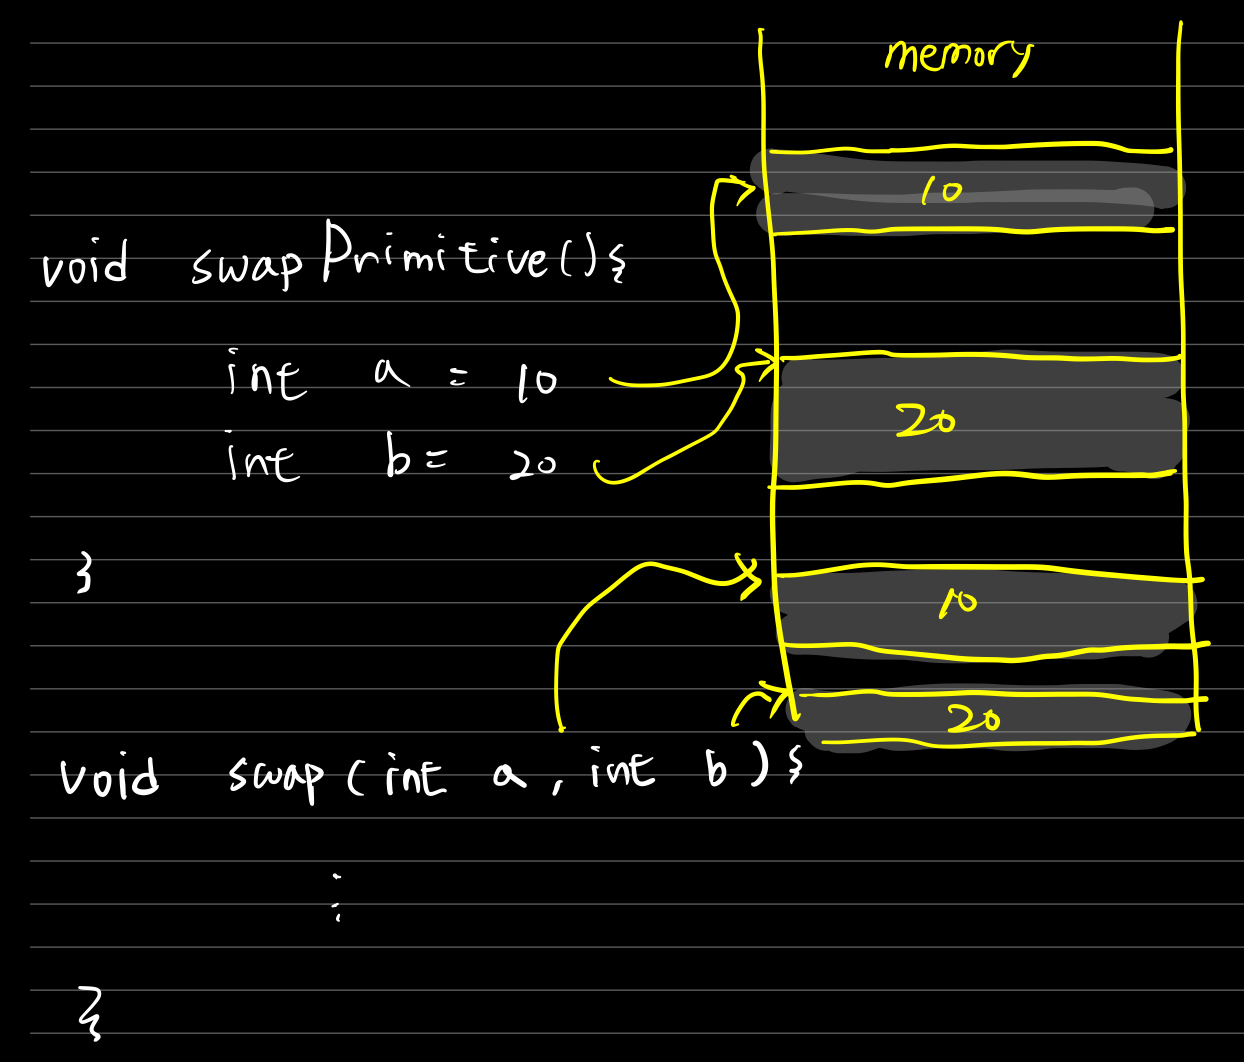 memory
10
void swapPrimitive(){
int a = 10
20
int b = 20
}
10
20
void swap(int a, int b){
:
}